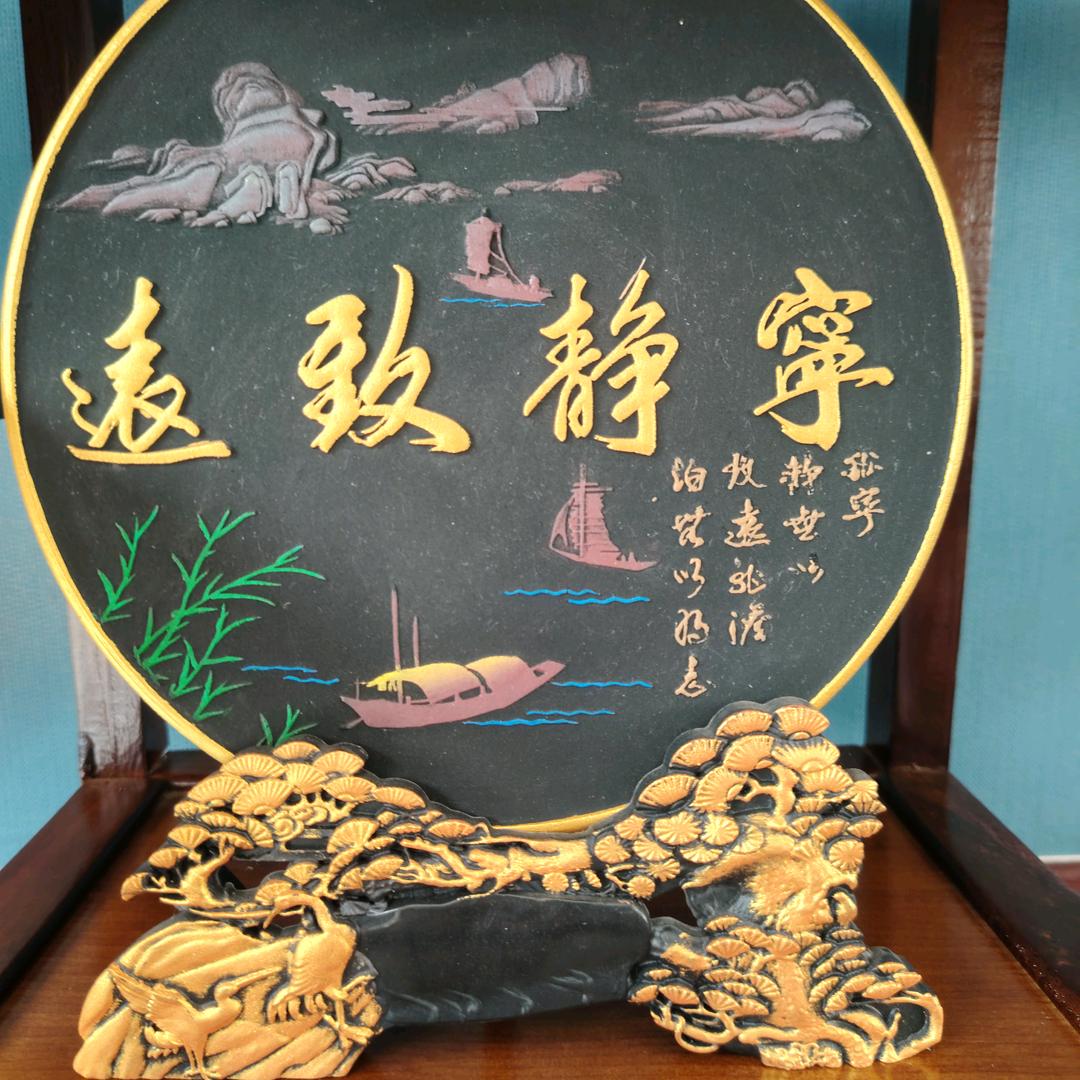 寧静致遠
非寧
静無以
致遠非澹
泊無以明志